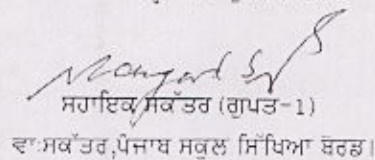 ਸਹਾਇਕ ਸਕੱਤਰ (ਗੁਪਤ-1)
ਵਾ:ਸਕੱਤਰ,ਪੰਜਾਬ ਸਕੂਲ ਸਿੱਖਿਆ ਬੋਰਡ।